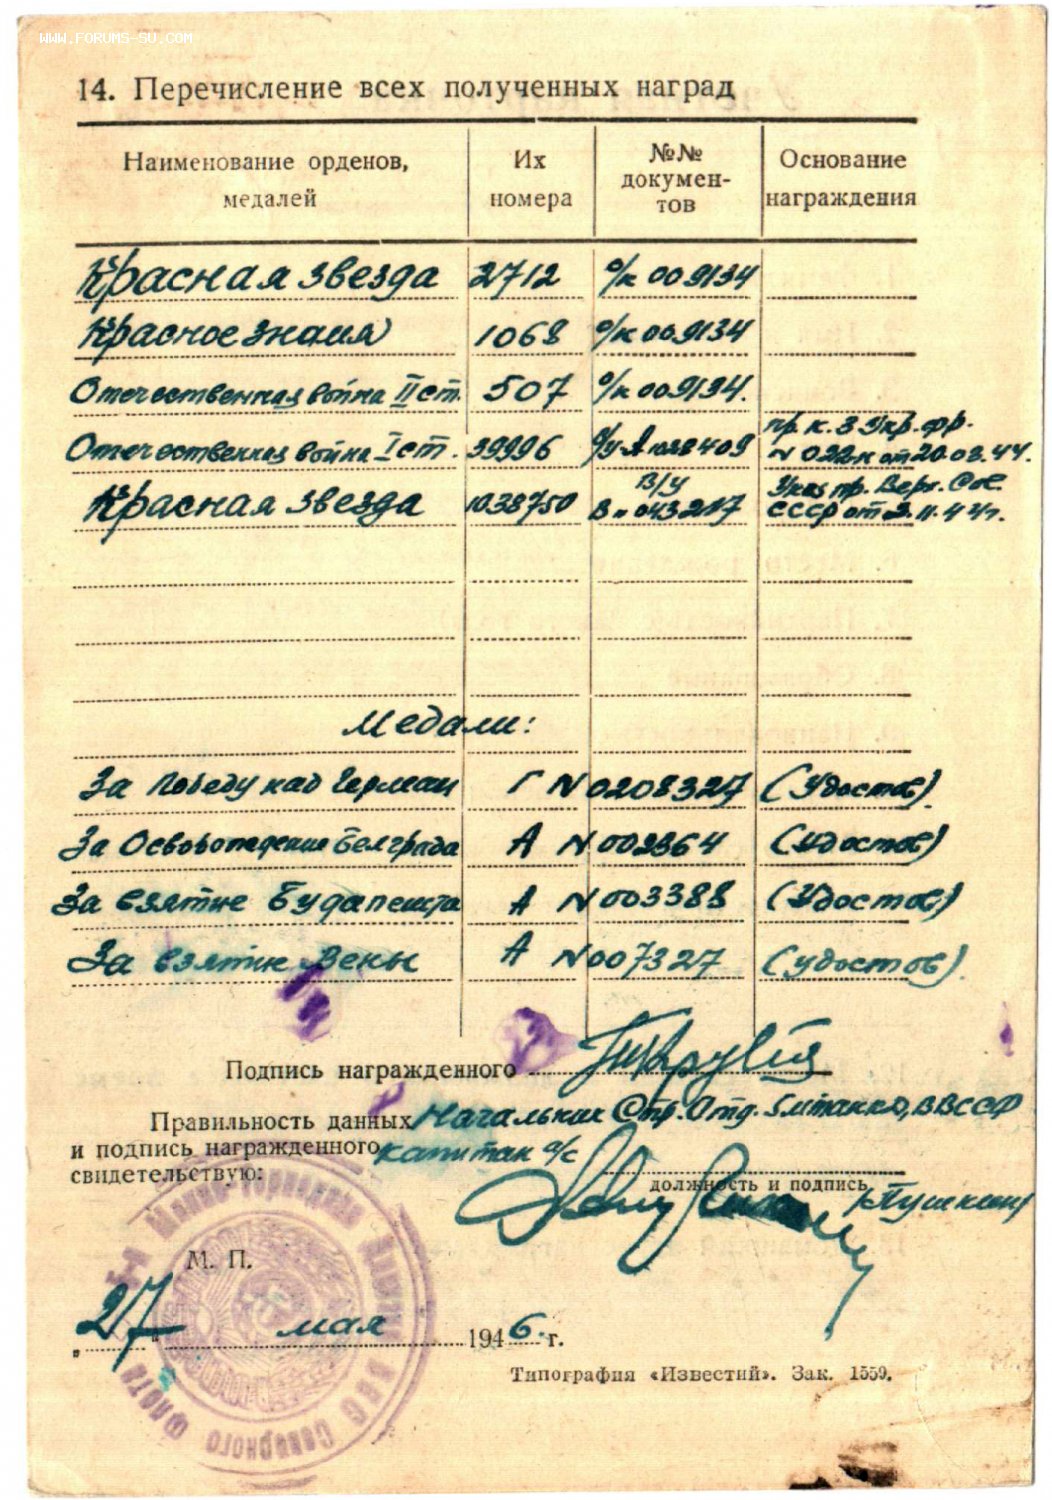 WWW.FORUMS-SU.COM
14. Перечисление всех полученных наград
Наименование орденов, медалей Их номера №№ докумен-тов Основание награждения
Красная звезда 2712 о/к 009134
Красное знамя 1068 о/к 009134
Отечественная война II ст. 507 о/к 009134.
Отечественная война I ст. 39996 пр. к. 3 Укр. фр. N 022/н от 20.02.44.
Красная звезда 1038750 В/У В N 043217 Указ пр. Верх. Сов. СССР от 2.11.44 г.
Медали:
За Победу над Герман Г N 0208327 (Удостов)
За Освобождение Белграда А N 002364 (Удостов)
За взятие Будапешта А N 003388 (Удостов)
За взятие Вены А N 007327 (удостов).
Подпись награжденного
Правильность данных Начальник Стр. Отд.
и подпись награженного капитан а/с
свидетельствую:
должность и подпись
/Пушкин/
М. П.
„27" мая 1946. г.
Типография «Известий». Зак. 1559.
5-я Минно-торпедная
ВВС Северного флота